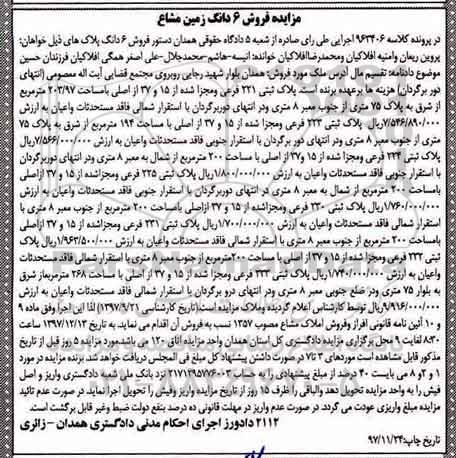 مزایده فروش ۶ دانگ زمین مشاع
در پرونده کلاسه ۹۶۳۴۰۶ اجرایی طی رای صادره از شعبه ۵ دادگاه حقوقی همدان دستور فروش ۶ دانگ پلاک های ذیل خواهان:
پروین ریمان وامنیه افلاکیان ومحمدرضاافلاکیان خوانده: انیسه-هاشم-محمدجلال-علی اصغر همگی افلاکیان فرزندان حسین
موضوع دادنامه: تقسیم مال آدرس ملک مورد فروش: همدان بلوار شهید رجایی روبروی مجتمع قضایی آیت اله معصومی (انتهای
دور برگردان) هزینه ها برعهده برنده است. پلاک ثبتی ۲۲۱ فرعی ومجزا شده از ۱۵ و ۳۷ از اصلی بامساحت ۲۰۳/۹۷ مترمربع
از شرق به پلاک ۷۵ متری از جنوب معبر ۸ متری ودر انتهای دوربرگردان با استقرار جنوبی فاقد مستحدثات واعیان به ارزش
۷/۵۴۶/۸۹۰/۰۰۰ریال پلاک ثبتی ۲۲۲ فرعی ومجزاشده از ۱۵ و ۳۷ از اصلی با مساحت ۱۹۴ مترمربع از شرق به پلاک ۷۵
متری از جنوب معبر ۸ متری ودر انتهای دور برگردان با استقرار جنوبی فاقد مستحدثات واعیان به ارزش ۷/۵۶۶/۰۰۰/۰۰۰ریال
پلاک ثبتی ۲۲۴ فرعی ومجزا شده از ۱۵ و۳۷ از اصلی با مساحت ۲۰۰ مترمربع از شمال به معبر ۸ متری ودر انتهای دوربرگردان
با استقرار جنوبی فاقد مستحدثات واعیان به ارزش ۱/۸۰۰/۰۰۰/۰۰۰ریال پلاک ثبتی ۲۲۵ فرعی ومجزاشده از ۱۵ و ۳۷ ازاصلی
بامساحت ۲۰۰ مترمربع از شمال به معبر ۸ متری ودر انتهای دوربرگردان با استقرار جنوبی فاقد مستحدثات واعیان به ارزش
۱/۷۶۰/۰۰۰/۰۰۰ریال پلاک ثبتی ۲۳۰ فرعی ومجزاشده از ۱۵ و ۳۷ ازاصلی با مساحت ۲۰۰ مترمربع از جنوب معبر ۸ متری با
استقرار شمالی فاقد مستحدثات واعیان به ارزش ۱/۷۰۰/۰۰۰/۰۰۰ریال پلاک ثبتی ۲۳۱ فرعی ومجزاشده از ۱۵ و ۳۷ از اصلی
بامساحت ۲۰۰ مترمربع از جنوب معبر ۸ متری با استقرار شمالی فاقد مستحدثات واعیان به ارزش ۱/۹۶۳/۵۰۰/۰۰۰ریال پلاک
ثبتی ۲۳۲ فرعی ومجزاشده از ۱۵ و ۳۷ از اصلی بامساحت ۲۰۰مترمربع از جنوب معبر ۸ متری با استقرار شمالی فاقد مستحدثات
واعیان به ارزش ۱/۷۴۰/۰۰۰/۰۰۰ریال پلاک ثبتی ۲۳۳ فرعی ومجزاشده از ۱۵ و ۳۷ از اصلی با مساحت ۲۶۸ مترمربعاز شرق
به بلوار ۷۵ متری ودر ضلع جنوبی معبر ۸ متری ودر انتهای درو برگردان با استقرار شمالی فاقد مستحدثات واعیان به ارزش
۹/۹۱۶/۰۰۰/۰۰۰ریال توسط کارشناس اعلام گردیده وملاک مزایده است.(تاریخ کارشناسی ۱۳۹۷/۸/۲۱) لذا این اجرا وفق ماده ۹
و ۱۰ آئین نامه قانونی افراز وفروش املاک مشاع مصوب ۱۳۵۷ نسب به فروش آن اقدام می نماید. به تاریخ ۱۳۹۷/۱۲/۱۲ ساعت
۸:۳۰ لغایت ۹ محل برگزاری مزایده دادگستری کل استان همدان واحد مزایده اتاق ۱۲۰ می باشد.مورد مزایده ۵ روز قبل از تاریخ
مذکور قابل مشاهده است موردهای ۳ تا۷ در صورت داشتن پیشنهاد کل مبلغ فی المجلس دریافت خواهد شد. برنده مزایده در مورد
۱ و۲و ۸ می بایست ۴۰ درصد از مبلغ پیشنهادی را به حساب ۲۱۷۱۲۹۵۷۷۶۰۰۲ نزد بانک ملی شعبه دادگستری واریز و اصل
فیش را به واحد مزایده تحویل دهد والباقی را ظرف ۱۵ روز از تاریخ مزایده واریز وفیش را تحویل نماید. در صورت عدم تائید
مزایده مبلغ واریزی عودت می گردد. در صورت عدم واریز در مهلت قانونی ده درصد بنفع دولت ضبط وغیر قابل برگشت است.
۲۱۱۲ دادورز اجرای احکام مدنی دادگستری همدان - زائری
تاریخ چاپ:۹۷/۱۱/۲۴